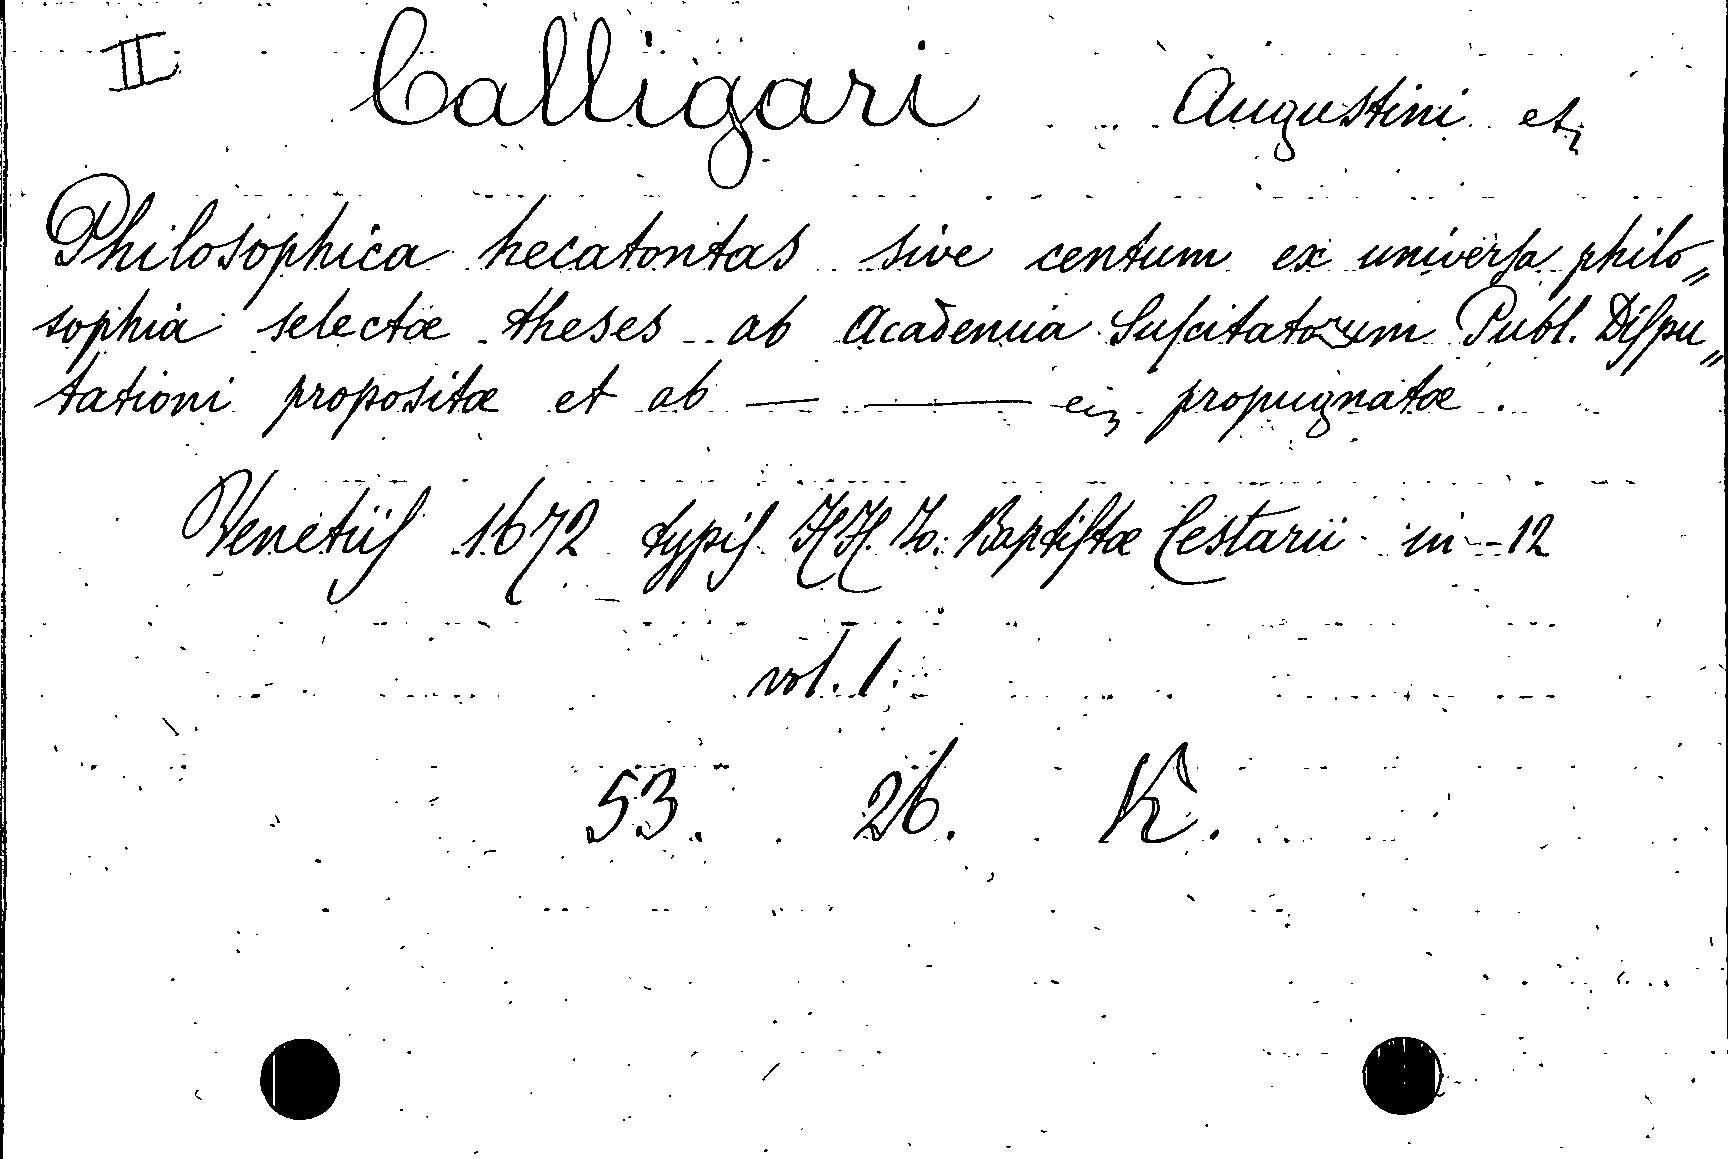 II Calligari Augustini etz
Philosophica hecatontas sive centum ex universa philo„
sophia selectæ theses ab Academia Suscitatorum Publ. Dispu„
tationi propositæ et ab — — eiz propugnatæ.
Venetiis 1672 typis HH. Jo: Baptistæ Cestarii in-12
vol. 1.
53. 26. K.